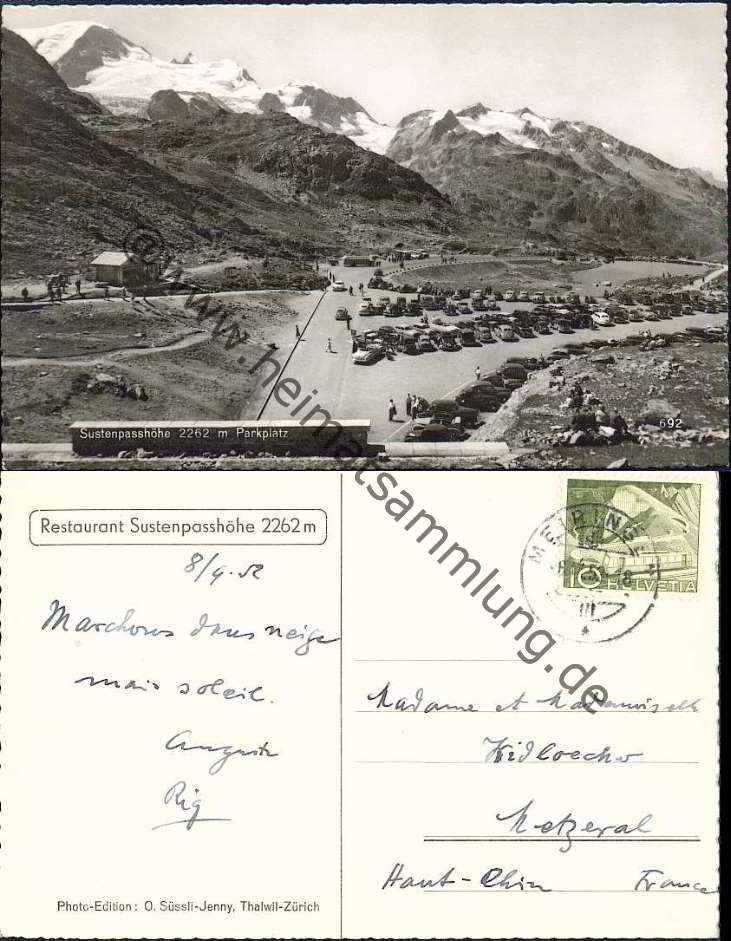 Sustenpasshöhe 2262 m Parkplatz
692
www.heimatsammlung.de
Restaurant Sustenpasshöhe 2262 m
8/9.52
Marchons dans neige
mais soleil.
MEIRINGEN
10 HELVETIA
Madame et Mademoiselle
Metzeral
Haut-Rhin France
Photo-Edition: O. Süssli-Jenny, Thalwil-Zürich